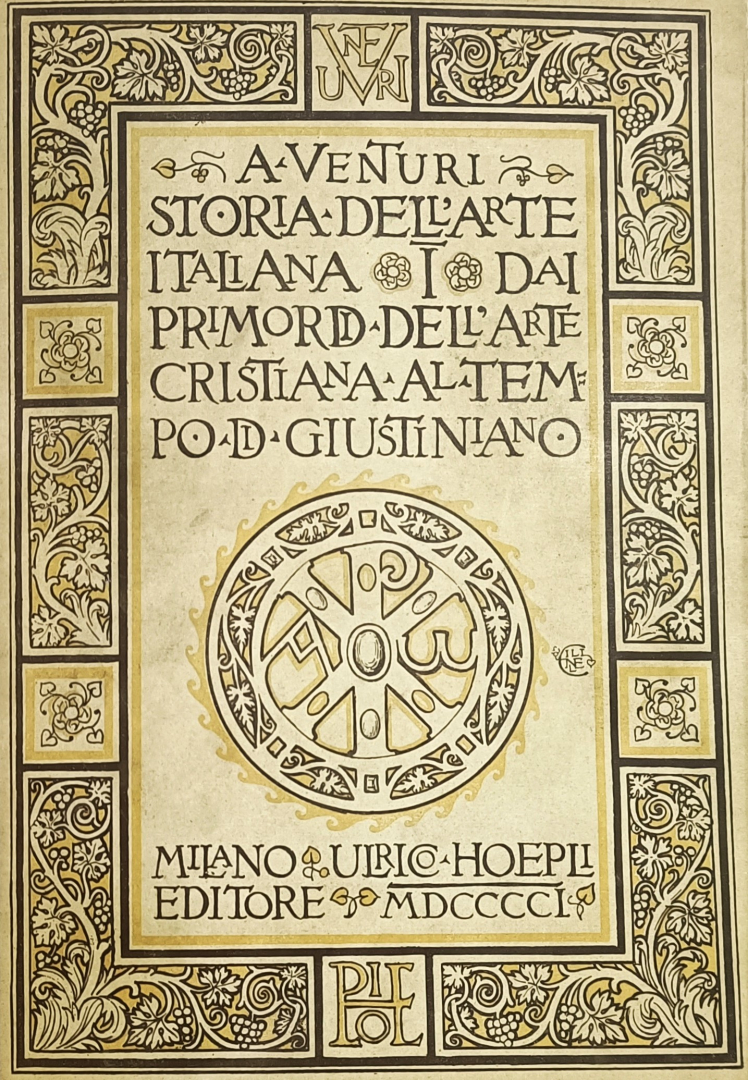 A·VENTURI
STORIA·DELL'ARTE
ITALIANA I DAI
PRIMORDI·DELL'ARTE
CRISTIANA·AL·TEM=
PO·DI·GIUSTINIANO
P
A ω
MILANO ULRICO·HOEPLI
EDITORE MDCCCCI